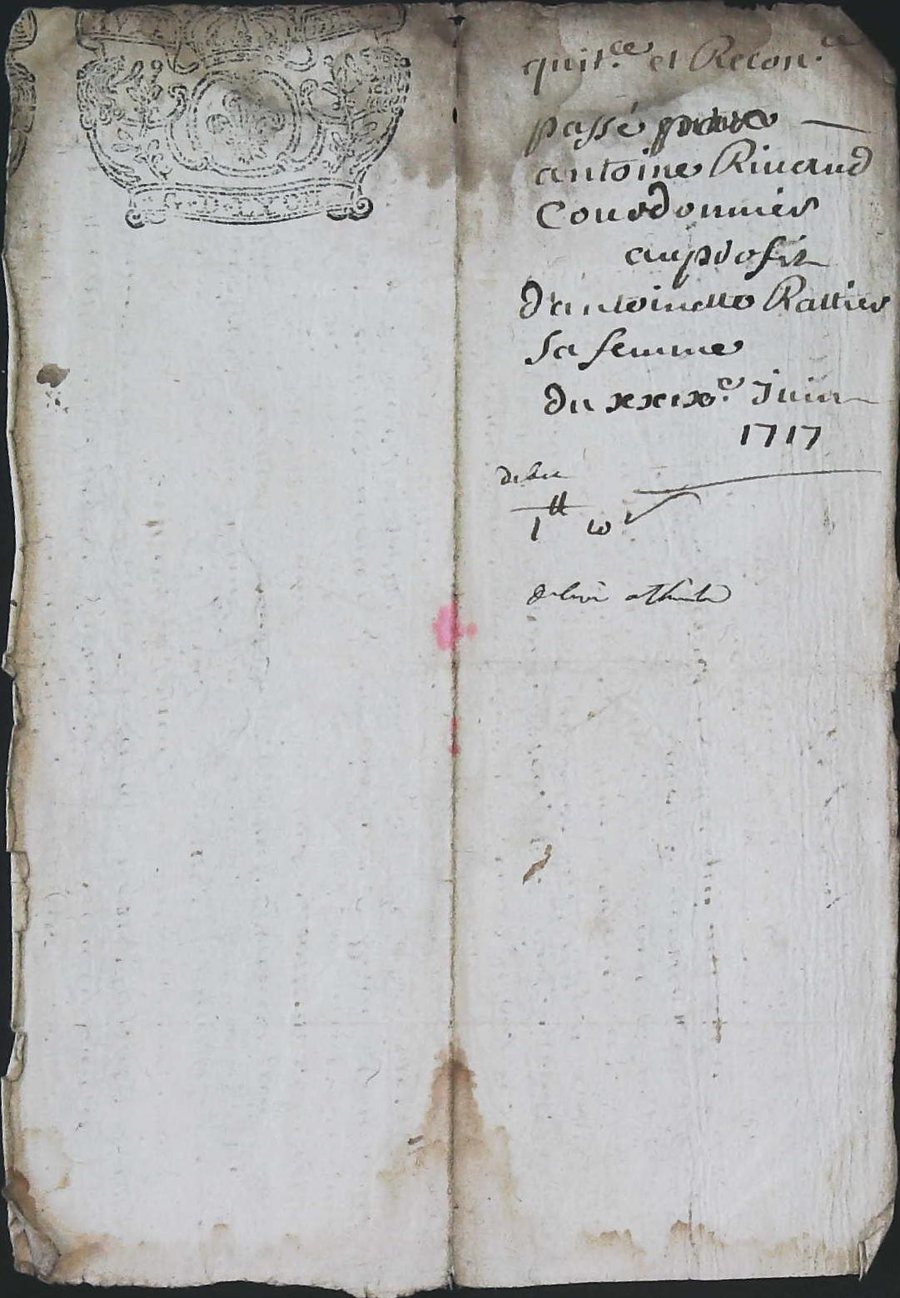 G. D. LYON
quit.ce et Recon.ce
passé par
antoine Riuaud
Courdonnier
au profit
d'antoinette Rattier
sa femme
du xxix.e Juin
1717
1tt
deliuré